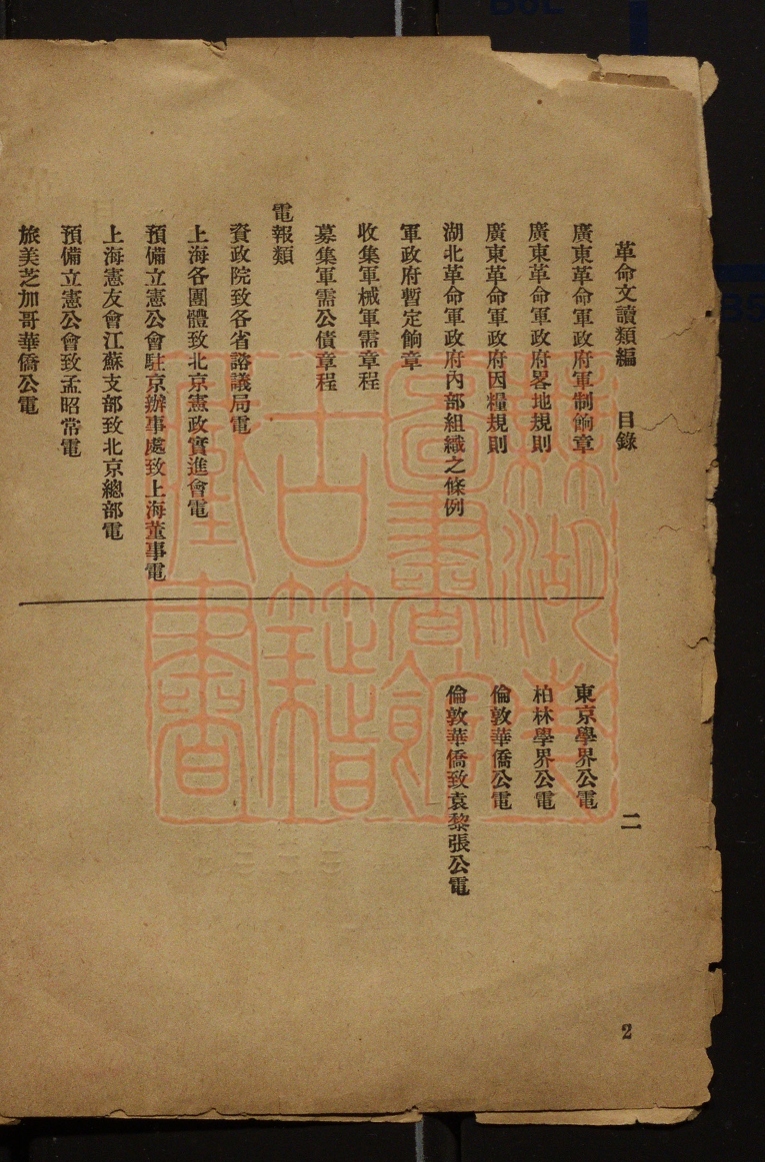 革命文讀類編 目錄 二
廣東革命軍政府軍制餉章
廣東革命軍政府畧地規則
廣東革命軍政府因糧規則
湖北革命軍政府內部組織之條例
軍政府暫定餉章
收集軍械軍需章程
募集軍需公債章程
電報類
資政院致各省諮議局電
上海各團體致北京憲政實進會電
預備立憲公會駐京辦事處致上海董事電
上海憲友會江蘇支部致北京總部電
預備立憲公會致孟昭常電
旅美芝加哥華僑公電
東京學界公電
柏林學界公電
倫敦華僑公電
倫敦華僑致袁黎張公電
2